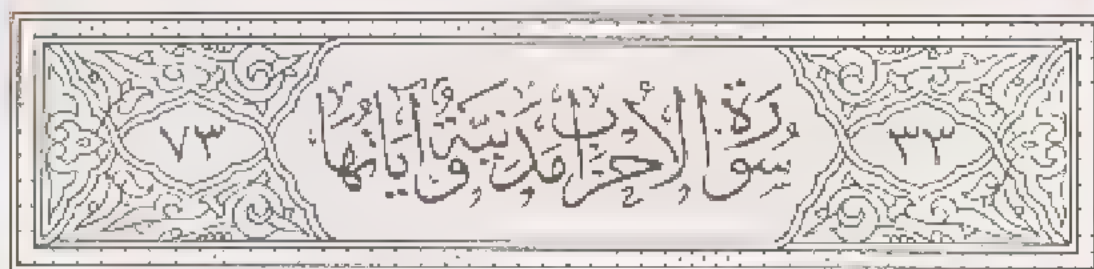 ٣٣ سُورَةُ الْأَحْزَابِ مَدَنِيَّةٌ وَآيَاتُهَا ٧٣